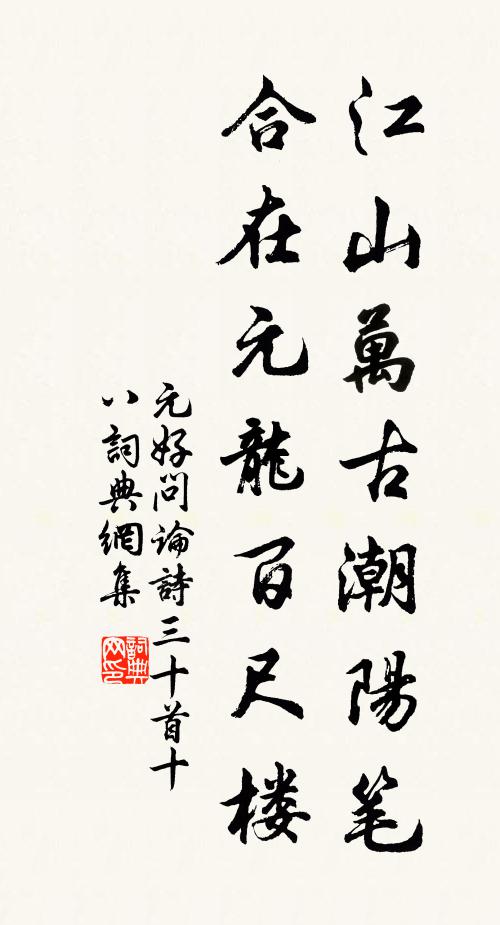 江山萬古潮陽笔
合在元龍百尺楼
元好问論詩三十首十
八詞典網集
詞典
网印